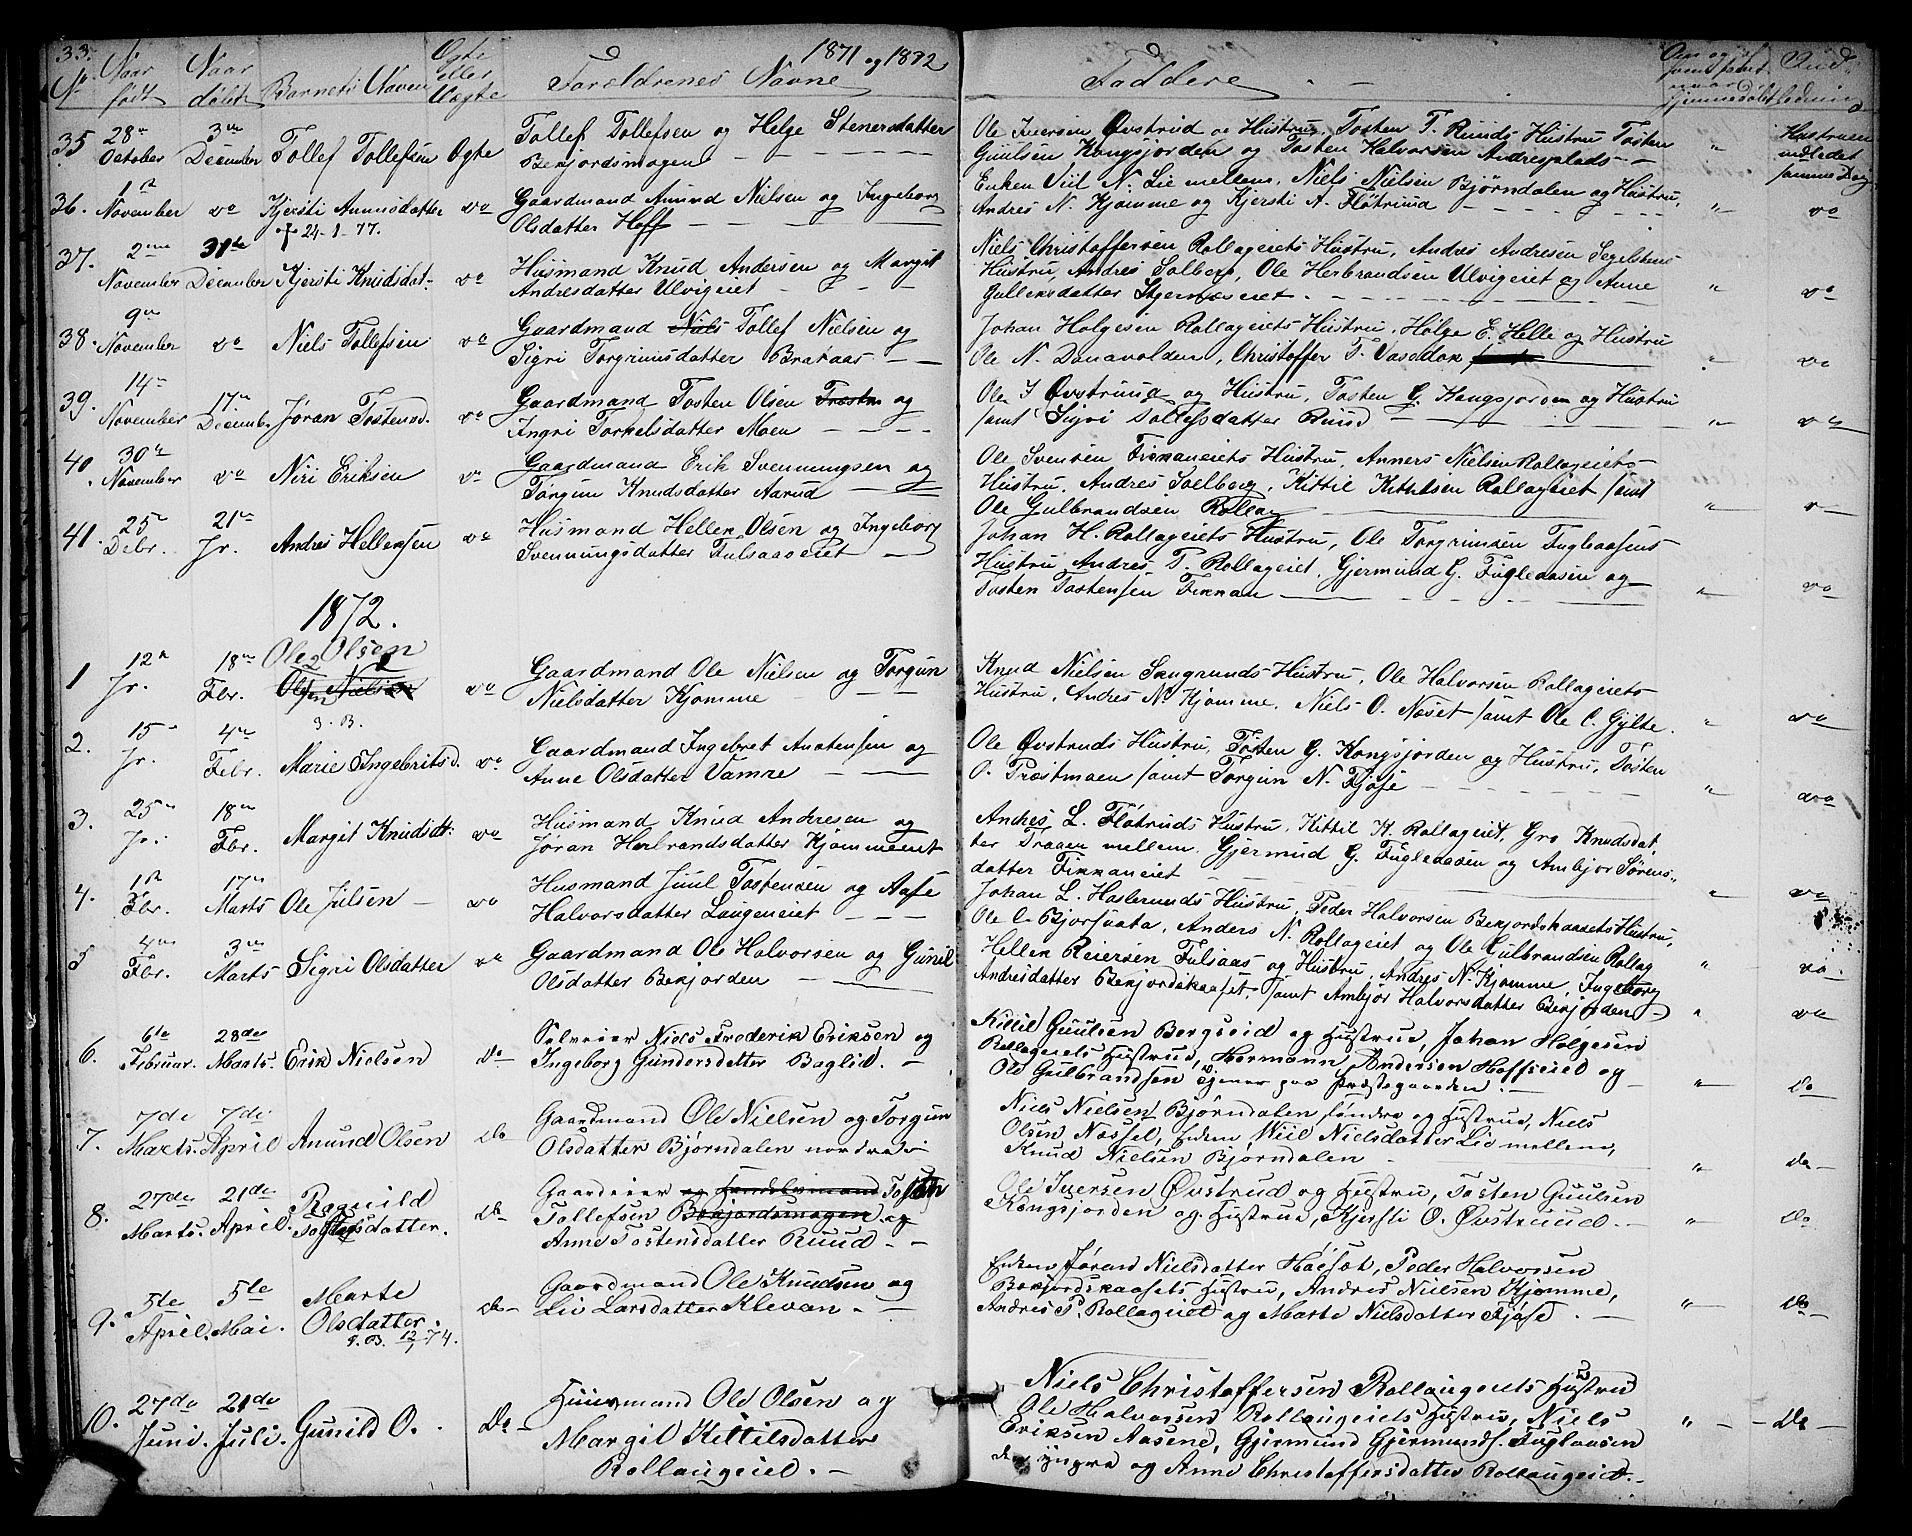 33.
1871 og 1872
No Naar født Naar døbt Barnets Navn Ægte eller Uægte Forældrenes Navne Faddere
35 28de October 3die December Tollef Tollefsen Ægte Tollef Tollefsen og Helge Stenersdatter
Bekjordsmogen
Ole Iversen Øvstrud og Hustru, Tosten T. Ruuds Hustru Tosten
Guulsen Kongsjorden og Tosten Halvorsen Andresplads
Hustruen indledet samme Dag
36. 1st November do Kjersti Anunsdatter do Gaardmand Anund Nielsen og Ingeborg
24-1-77.
Olsdatter Hoff
Enken Viil N. Lie mellem, Niels Nielsen Bjørndalen og Hustru,
Andres N. Kjomme og Kjersti A. Fløtruud
do
37. 2den November 31te December Kjersti Knudsdat. do Husmand Knud Andersen og Margit
Andresdatter Ulvigeiet
Niels Christoffersen Rollageiets Hustru, Andres Andresen
Hustru, Andres Solberg, Ole Herbrandsen Ulvigeiet og Anne
Gullensdatter
do
38. 9de November do Niels Tollefsen do Gaardmand Niels Tollef Nielsen og
Sigri Torgrimsdatter Brakaas
Johan Holgesen Rollageiets Hustru, Holge E. Helle og Hustru
Ole N. Donavolden, Christoffer T. Vasedok
do
39. 14de November 17de December Jøran Tostensd. do Gaardmand Tosten Olsen og
Ingri Torkelsdatter Moen
Ole I Øvstruud og Hustru, Tosten G. Kongsjorden og Hustru
samt Sigri Tollefsdatter Ruud
do
40. 30te November do Niri Eriksen do Gaardmand Erik Svenningsen og
Torgun Knudsdatter Aarud
Ole Svensen Fiknaneiets Hustru, Anners Nielsen Rollageiets
Hustru, Andres Solberg, Kittil Kittilsen Rollageiet samt
Ole Gulbrandsen Rollag
41. 25 Debr. 21de Jr. Andres Hellensen do Husmand Hellek Olsen og Ingeborg
Svenningsdatter Fulsaaseiet
Johan H. Rollageiets Hustru, Ole Torgrimsen Fugleaasens
Hustru, Andres T. Rollageiet, Gjermund G. Fugleaasen og
Tosten Tostensen Fiknan
do
1872.
Ole Olsen
1 12te Jr. 18de Fbr. Ole Nielsen do Gaardmand Ole Nielsen og Torgun
Nielsdatter Kjomme
Knud Nielsen Hustru, Ole Halvorsen Rollageiets
Hustru, Andres N. Kjomme, Niels O. Næset samt Ole C. Gylte.
do
2. 15 Jr. 4de Febr. Marie Ingebritsd. do Gaardmand Ingebret Anstensen og
Anne Olsdatter Vamre
Ole Øvstruds Hustru, Tosten G. Kongsjorden og Hustru, Tosten
O. Præstmoen samt Torgun N. Fjøse
do
3. 25 Jr. 18de Fbr. Margit Knudsdt: do Husmand Knud Andresen og
Jøran Herbrandsdatter Kjommeeiet
Andres L. Fløtruds Hustru, Kittil K. Rollageiet, Gro Knudsdat
ter Traaen mellem, Gjermud G. Fugleaasen og Ambjor Sørens-
datter Fiknaneiet
do
4. 1st Fbr. 17de Marts Ole Julsen do Husmand Juul Tostensen og Aase
Halvorsdatter Laugeneiet
Johan L. Haslerunds Hustru, Peder Halvorsen Bekjordskaasets Hustru,
Ole C. Bjorsaata, Anders N. Rollageiet og Ole Gulbrandsen Rollag
do
5 4de Fbr. 3die Marts Sigri Olsdatter do Gaardmand Ole Halvorsen og Gunil
Olsdatter Bekjorden
Hellek Reiersen Fulsaas og Hustru, Andres N. Kjomme, Ingeborg
Andresdatter Bekjordskaaset, samt Ambjør Halvorsdatter Bekjorden
do
6. 6te Februar. 28de Marts. Erik Nielsen do Selveier Niels Frederik Eriksen og
Ingeborg Gundersdatter Baglid.
Kittil Guulsen Bergseid og Hustrue, Johan Holgesen
Rollageiets Hustrue, Hermann Andersen Hoffseiet og
Ole Gulbrandsen tjener paa Præstegaarden.
do
7. 7de Marts. 7de April Anund Olsen do Gaardmand Ole Nielsen og Torgun
Olsdatter Bjørndalen nordre
Niels Nielsen Bjørndalen søndre og Hustrue, Niels
Olsen Næsset, Enken Viil Nielsdatter Lie mellem,
Knud Nielsen Bjørndalen
do
8. 27de Marts. 21de April. Ragnild Tostensdatter. do Gaardeier og Handelsmand Tosten
Tollefsen Bekjordsmogen og
Anne Tostensdatter Ruud
Ole Iversen Øvstrud og Hustru, Tosten Guulsen
Kongsjorden og Hustrue, Kjersti O. Øvstruud.
do
9. 5te April. 5te Mai. Marte Olsdatter. do Gaardmand Ole Knudsen og
Liv Larsdatter Klevan.
Enken Jørand Nielsdatter Haesæt, Peder Halvorsen
Bekjordskaasets Hustru, Andres Nielsen Kjomme,
Andres P. Rollageiet og Marte Nielsdatter Fjøse.
do
10. 27de Juni. 21de Juli. Gunild O. do Huusmand Ole Olsen og
Margit Kittilsdatter
Rollaugeiet.
Niels Christoffersen Rollaugeiets Hustru
Ole Halvorsen Rollaugeiets Hustru, Niels
Eriksen Aasene, Gjermund Gjermunds. Fuglaasen
den yngre og Anne Christoffersdatter Rollaugeiet.
do